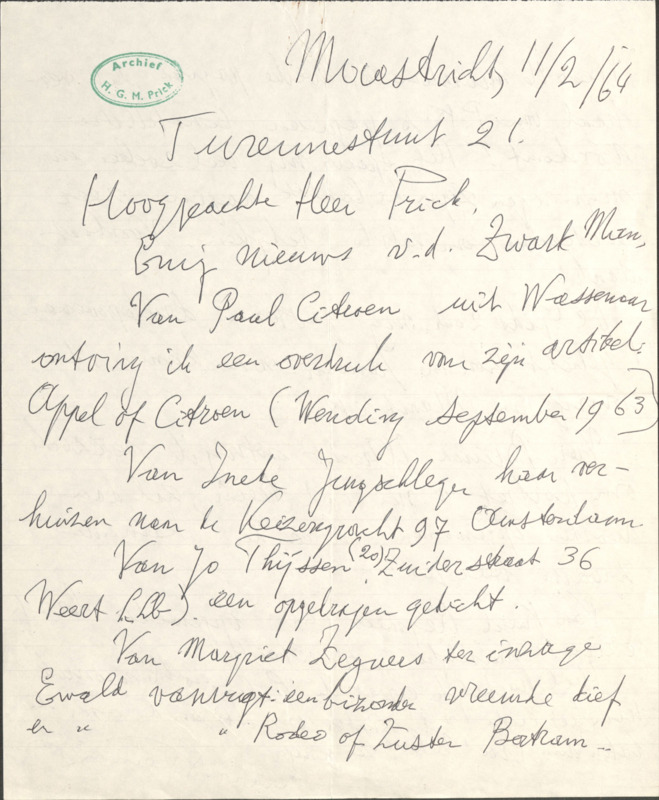 Archief
H. G. M. Prick
Maastricht, 11/2/'64
Turennestraat 21.
Hooggeachte Heer Prick,
Enig nieuws v.d. Zwart Man,
Van Paul Citroen uit Wassenaar
ontving ik een overdruk van zijn artikel:
Appel of Citroen (Wending september 1963)
Van Ineke Jungschleger haar ver-
huizen naar de Keizersgracht 97 Amsterdam
Van Jo Thijssen (20) Zuiderstraat 36
Weert (Lb) een opgedragen gedicht.
Van Margriet Zegers ter inzage
Ewald vanvugt: een bizonder vreemde dief
en " " Rodeo of Zuster Bertram -